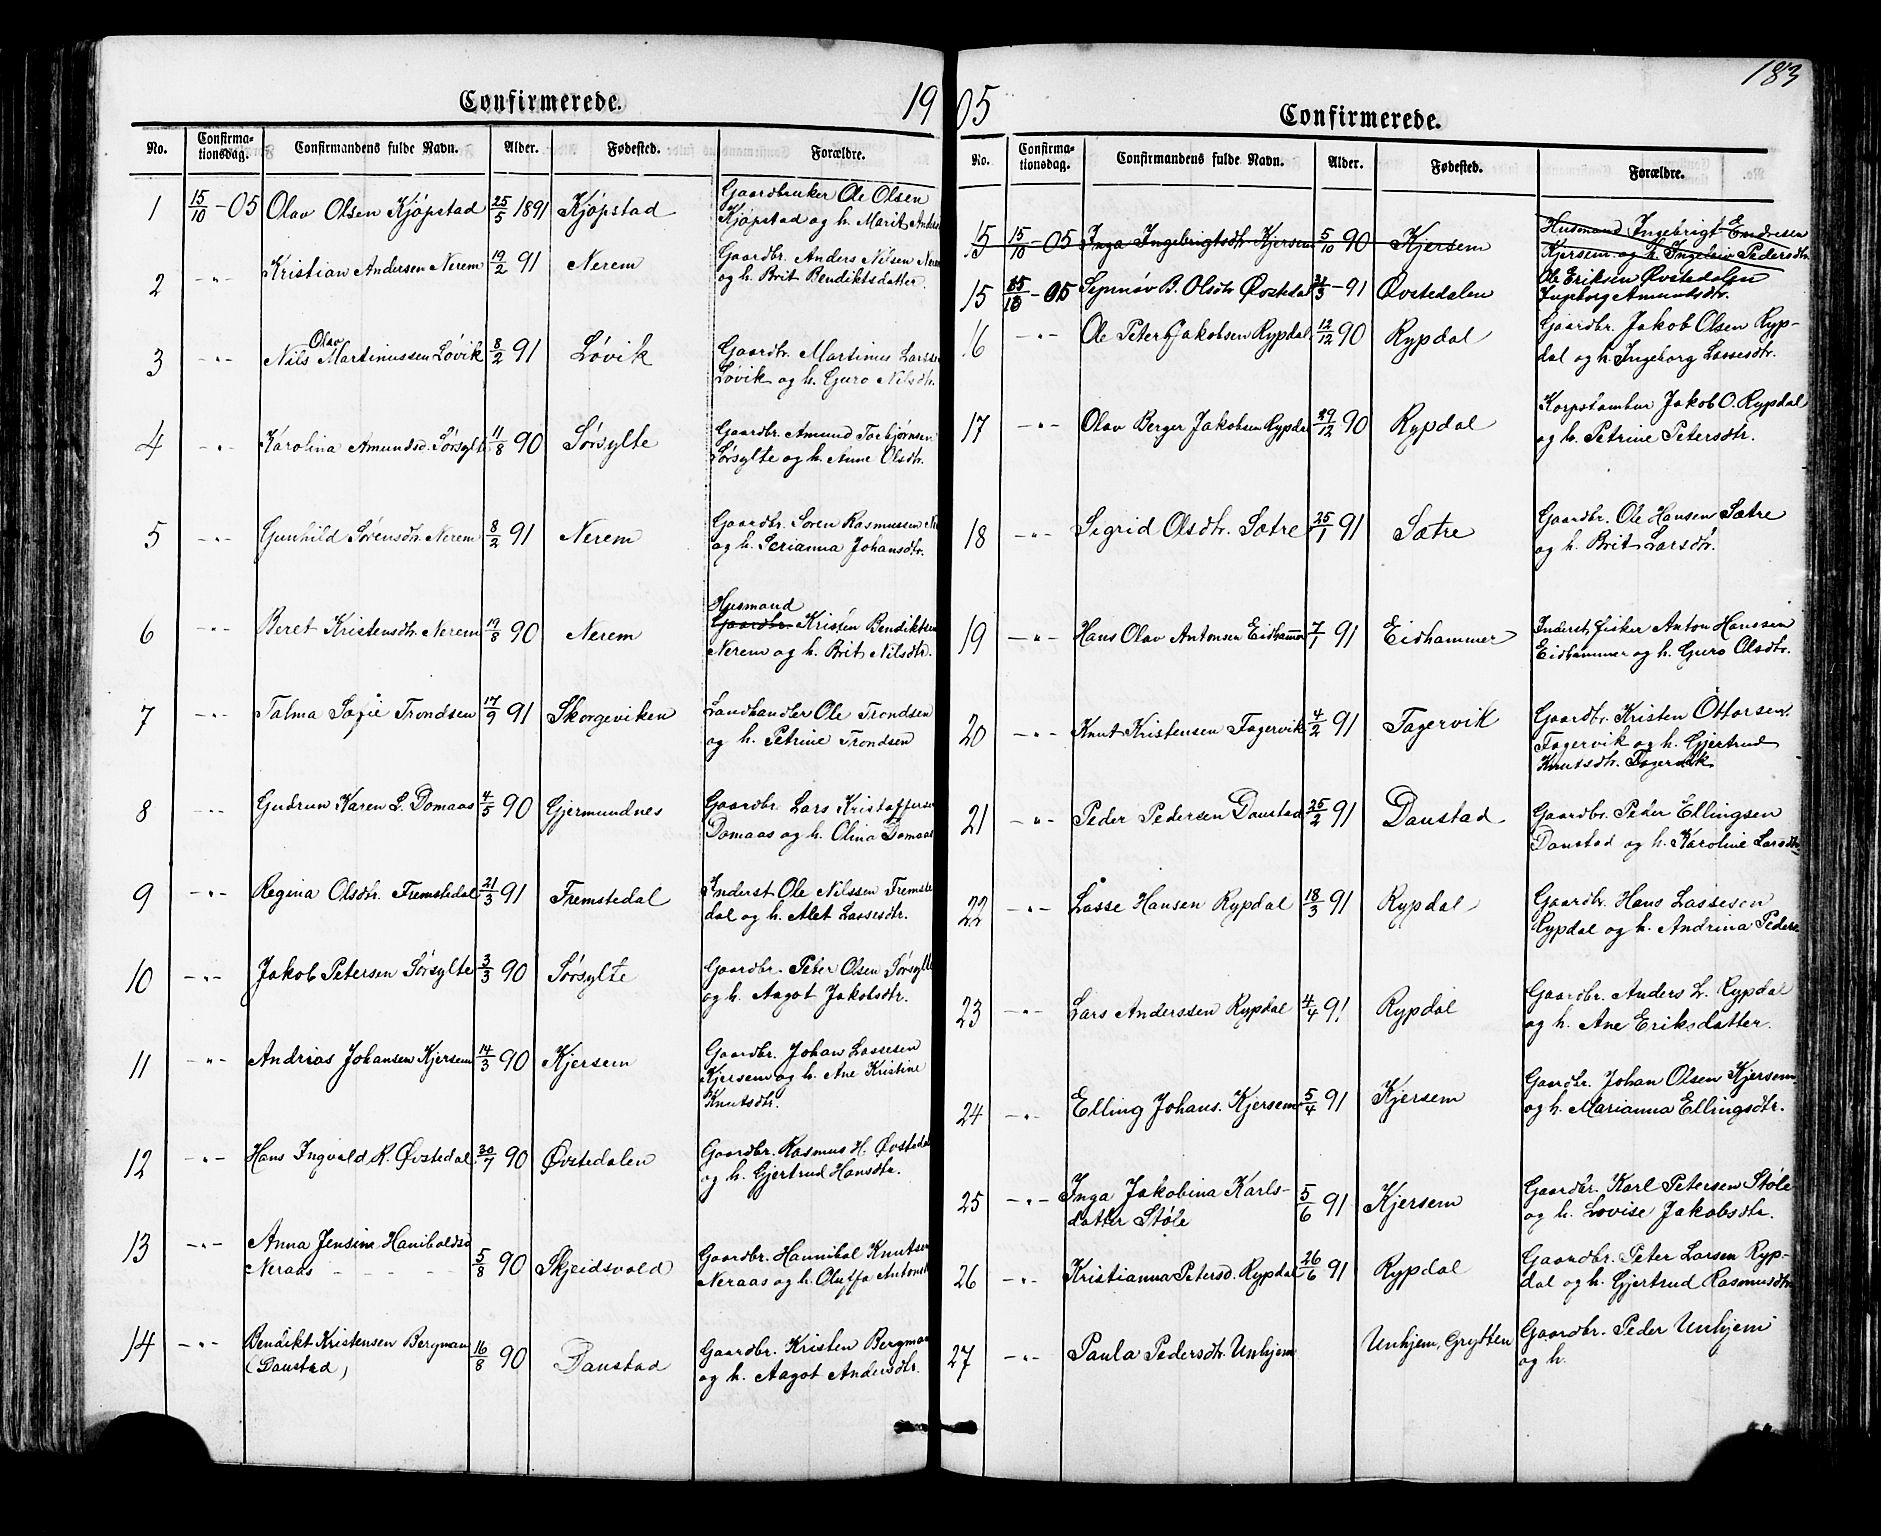 183
Confirmerede. 19
No. Confirmationsdag. Confirmandens fulde Navn. Alder. Fødested. Forældre.
1 15/10 - 05 Olav Olsen Kjøpstad 25/5 1891 Kjøpstad Gaardbruker Ole Olsen
Kjøpstad og h. Marit Anders
2 -"- Kristian Andersen Nerem 19/2 91 Nerem Gaardbr. Anders Nilsen Nerem
og h. Brit Bendiktsdatter.
Olav
3 -"- Nils Martinussen Løvik 8/2 91 Løvik Gaardbr. Martinus Larsen
Løvik og h. Guro Nilsdtr.
4 -"- Karolina Amundsd. Sørsylte 11/8 90 Sørsylte Gaardbr. Amund Torbjørnsen
Sørsylte og h. Anne Olsdtr.
5 -"- Gunhild Sørensdtr. Nerem 8/2 91 Nerem Gaardbr. Søren Rasmussen Ne
og h. Serianna Johansdtr.
Husmand
6 -"- Beret Kristensdtr. Nerem 19/8 90 Nerem Gaardbr. Kristen Bendiktsen
Nerem og h. Brit Nilsdtr.
7 -"- Talma Sofie Trondsen 17/9 91 Skorgeviken Landhandler Ole Trondsen
og h. Petrine Trondsen
8 -"- Gudrun Karen L. Domaas 4/5 90 Gjermundnes Gaardbr. Lars Kristoffersen
Domaas og h. Olina Domaas
9 -"- Regina Olsdtr. Fremstedal 21/3 91 Fremstedal Inderst Ole Nilssen Fremste
dal og h. Alet Lassesdtr.
10 -"- Jakob Petersen Sørsylte 3/3 90 Sørsylte Gaardbr. Peter Olsen Sørsylte
og h. Aagot Jakobsdtr.
11 -"- Andrias Johansen Kjersem 14/3 90 Kjersem Gaardbr. Johan Lassesen
Kjersem og h. Ane Kristine
Knutsdtr.
12 -"- Hans Ingvald R. Øvstedal 30/7 90 Øvstedalen Gaardbr. Rasmus H. Øvstedal
og h. Gjertrud Hansdtr.
13 -"- Anna Jensine Hanibaldsd
Neraas - - - - 5/8 90 Skjeidsvold Gaardbr. Hannibal Knutsen
Neraas og h. Oluffa Antonsd
14 -"- Bendikt Kristensen Bergman
(Daustad) 16/8 90 Daustad Gaardbr. Kristen Bergman
og h. Aagot Andersdtr.
05 Confirmerede.
No. Confirmationsdag. Confirmandens fulde Navn. Alder. Fødested. Forældre.
15 15/10 - 05 Inga Ingebrigtsdtr. Kjersem 5/10 90 Kjersem Husmand Ingebrigt Endresen
Kjersem og h. Ingeleiv Pedersdtr.
15 15/10 - 05 Synnøv B. Olsdtr Øvstedal 21/3 - 91 Øvstedalen Ole Eriksen Øvstedalen
Ingeborg Amundsdtr.
16 -"- Ole Peter Jakobsen Rypdal 12/12 90 Rypdal Gaardbr. Jakob Olsen Ryp-
dal og h. Ingeborg Lassesdtr.
17 -"- Olav Berger Jakobsen Rypdal 29/12 90 Rypdal Korpstambur Jakob O. Rypdal
og h. Petrine Petersdtr.
18 -"- Sigrid Olsdtr. Sætre 25/1 91 Sætre Gaardbr. Ole Hansen Sætre
og h. Brit Larsdtr.
19 -"- Hans Olav Antonsen Eidhammer 7/1 91 Eidhammer Inderst, fisker Anton Hanssen
Eidhammer og h. Guro Olsdtr.
20 -"- Knut Kristensen Fagervik 4/2 91 Fagervik Gaardbr. Kristen Ottorsen
Fagervik og h. Gjertrud
Knutsdtr. Fagervik
21 -"- Peder Pedersen Daustad 25/2 91 Daustad Gaardbr. Peder Ellingsen
Daustad og h. Karoline Larsdtr.
22 -"- Lasse Hansen Rypdal 18/3 91 Rypdal Gaardbr. Hans Lassesen
Rypdal og h. Andrina Peders
23 -"- Lars Anderssen Rypdal 4/4 91 Rypdal Gaardbr. Anders L. Rypdal
og h. Ane Eriksdatter.
24 -"- Elling Johans. Kjersem 5/4 91 Kjersem Gaardbr. Johan Olsen Kjersem
og h. Marianna Ellingsdtr.
25 -"- Inga Jakobina Karls-
datter Støle 5/6 91 Kjersem Gaardbr. Karl Petersen Støle
og h. Lovise Jakobsdtr.
26 -"- Kristianna Petersd. Rypdal 26/6 91 Rypdal Gaardbr. Peter Larsen Ryp-
dal og h. Gjertrud Rasmusdtr
27 -"- Paula Pedersdtr. Unhjem Unhjem, Grytten Gaardbr. Peder Unhjem
og h.